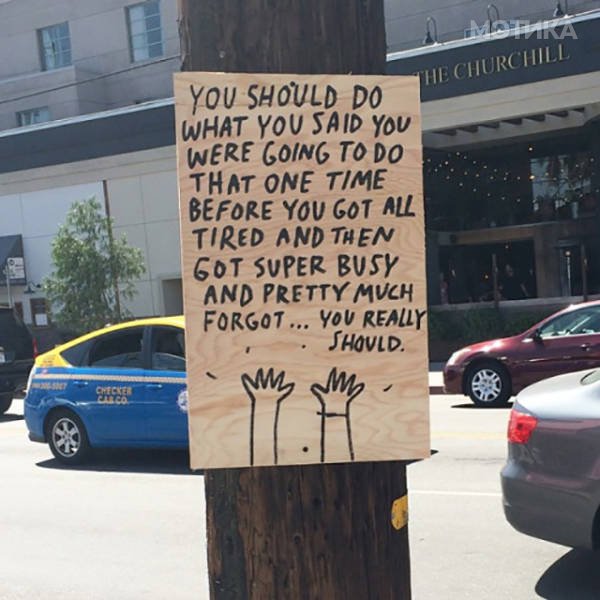 МОТИКА
THE CHURCHILL
YOU SHOULD DO
WHAT YOU SAID YOU
WERE GOING TO DO
THAT ONE TIME
BEFORE YOU GOT ALL
TIRED AND THEN
GOT SUPER BUSY
AND PRETTY MUCH
FORGOT... YOU REALLY
SHOULD.
CHECKER
CAB CO.